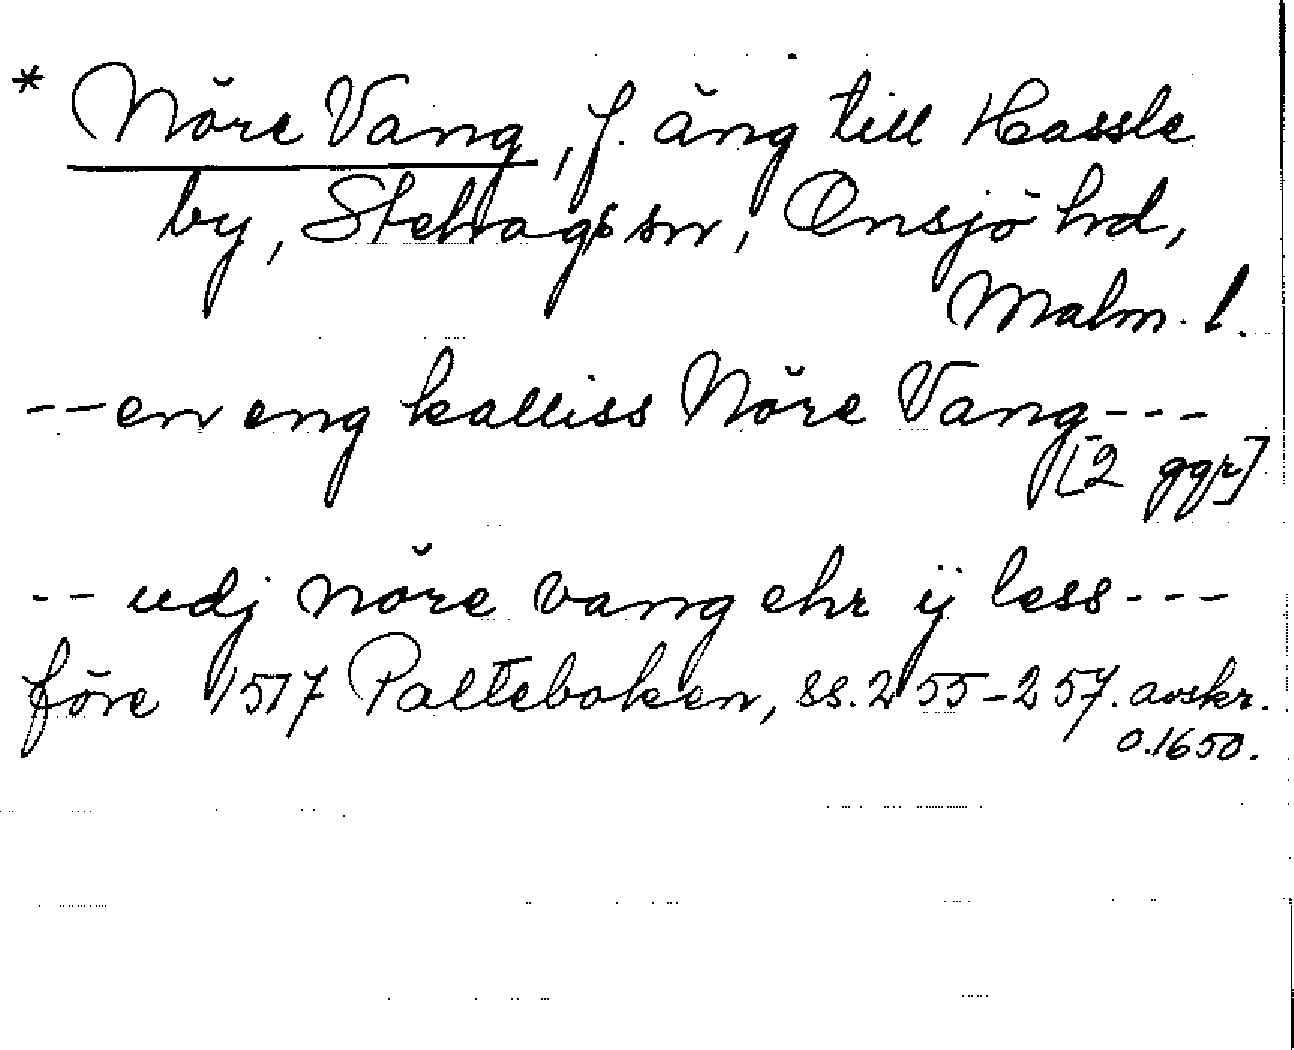 * Nöre Vang, f. äng till Hassle
by, Stehags sn, Onsjö hd,
Malm. l.
-- en eng kalliss Nöre Vang ---
[2 ggr]
-- udj nöre vang ehr ij less ---
före 1517 Palteboken, ss. 255-257. avskr.
o. 1650.